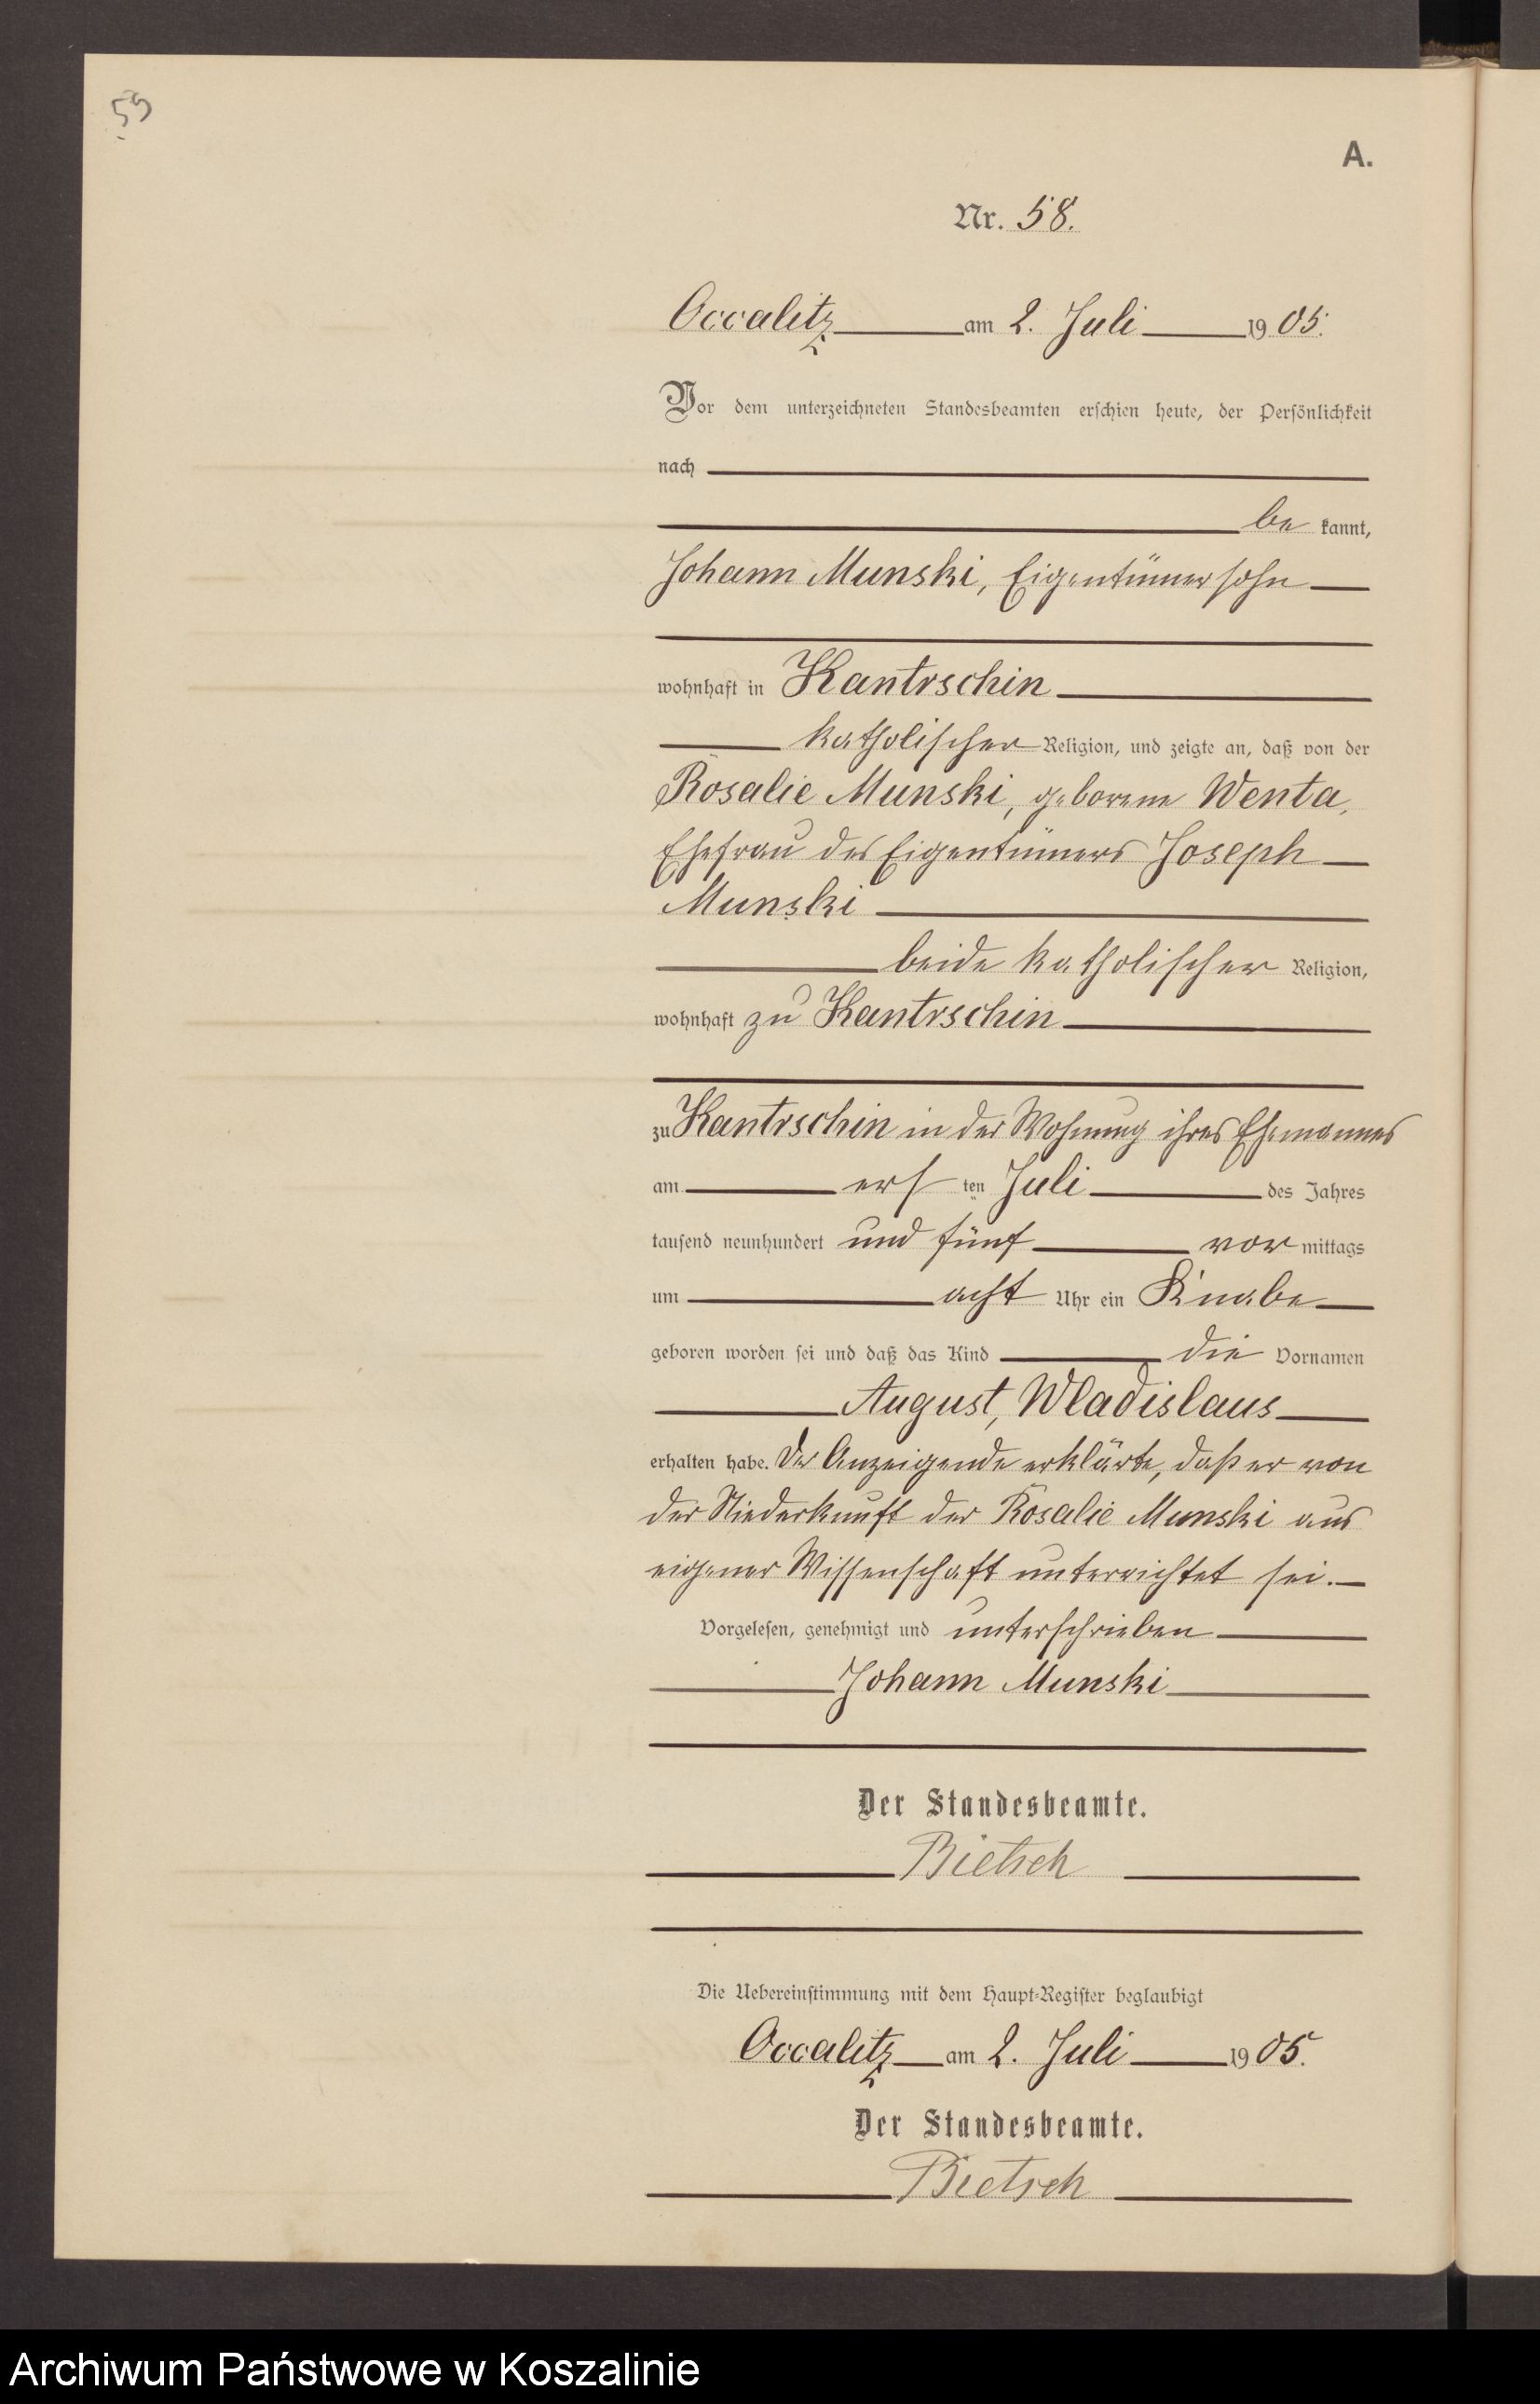 59
A.
Nr. 58.
Occalitz am 2. Juli 1905.
Vor dem unterzeichneten Standesbeamten erschien heute, der Persönlichkeit
nach
be kannt,
Johann Munski, Eigentümersohn
wohnhaft in Kantrschin
katholischer Religion, und zeigte an, daß von der
Rosalie Munski, geborene Wenta,
Ehefrau des Eigentümers Joseph
Munski
beide katholischer Religion,
wohnhaft zu Kantrschin
zu Kantrschin in der Wohnung ihres Ehemannes
am ersten Juli des Jahres
tausend neunhundert und fünf vormittags
um acht Uhr ein Knabe
geboren worden sei und daß das Kind die Vornamen
August, Wladislaus
erhalten habe. Der Anzeigende erklärte, daß er von
der Niederkunft der Rosalie Munski aus
eigener Wissenschaft unterrichtet sei.
Vorgelesen, genehmigt und unterschrieben
Johann Munski
Der Standesbeamte.
Bietsch
Die Uebereinstimmung mit dem Haupt-Register beglaubigt
Occalitz am 2. Juli 1905.
Der Standesbeamte.
Bietsch
Archiwum Państwowe w Koszalinie